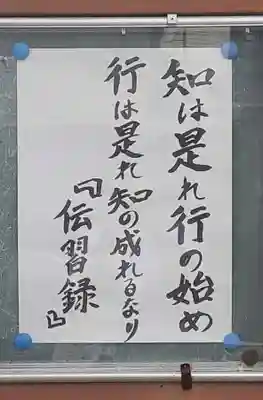 知は是れ行の始め
行は是れ知の成れるなり
『伝習録』